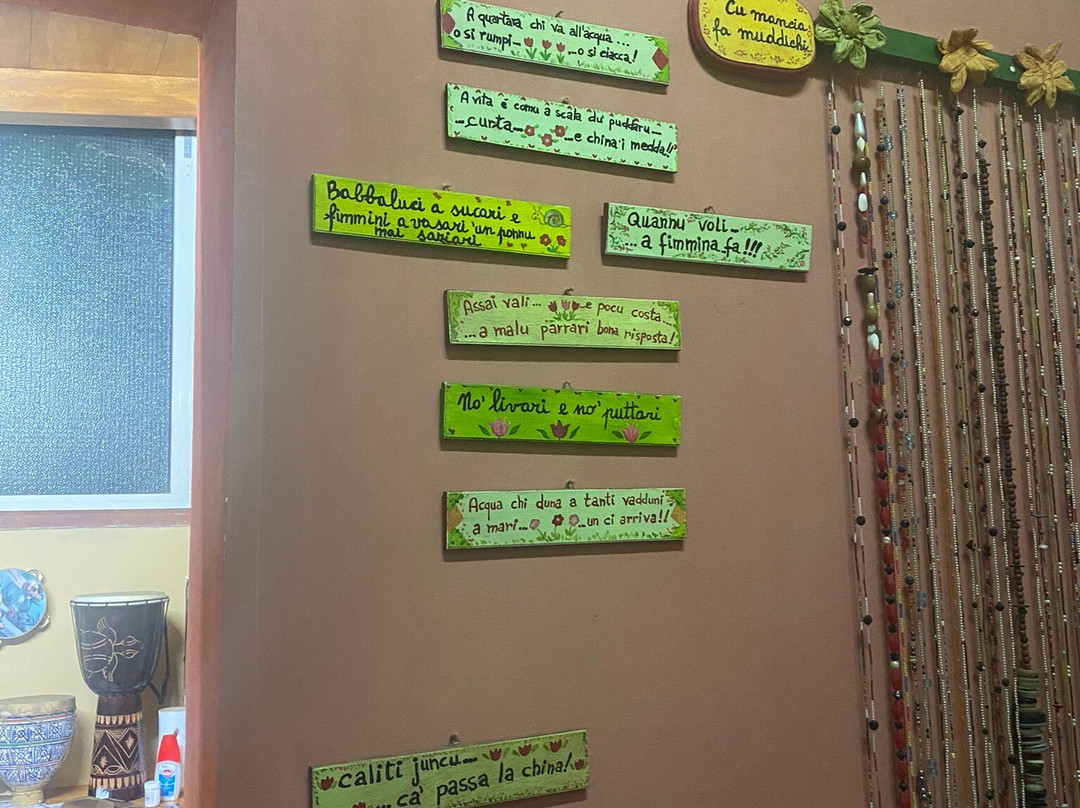 A quartara chi va all'acqua...
o si rumpi... ...o si ciacca!
Cu mancia
fa muddichi
A vita è comu a scala du' puddaru...
...curta... ...e china'i medda!!
Babbaluci a sucari e
fimmini a vasari 'un ponnu
mai saziari
Quannu voli...
...a fimmina fa!!!
Assai vali... ...e pocu costa...
...a malu parrari bona risposta!
No' livari e no' puttari
Acqua chi duna a tanti vadduni
a mari... ...un ci arriva!!
caliti juncu...
...ca' passa la china!